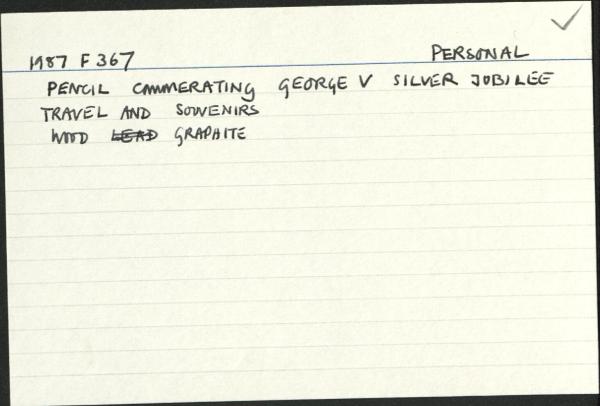 1987 F 367 PERSONAL
PENCIL CMMERATING GEORGE V SILVER JUBILEE
TRAVEL AND SOUVENIRS
WOOD LEAD GRAPHITE